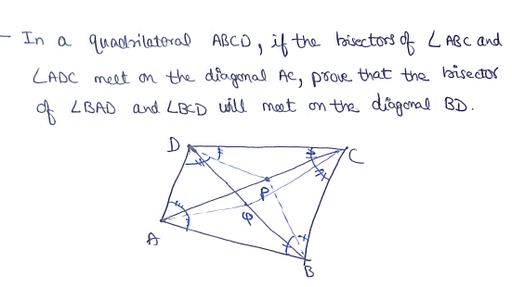 - In a quadrilateral ABCD, if the bisectors of ∠ABC and
∠ADC meet on the diagonal AC, prove that the bisector
of ∠BAD and ∠BCD will meet on the diagonal BD.
D
C
P
Q
A
B